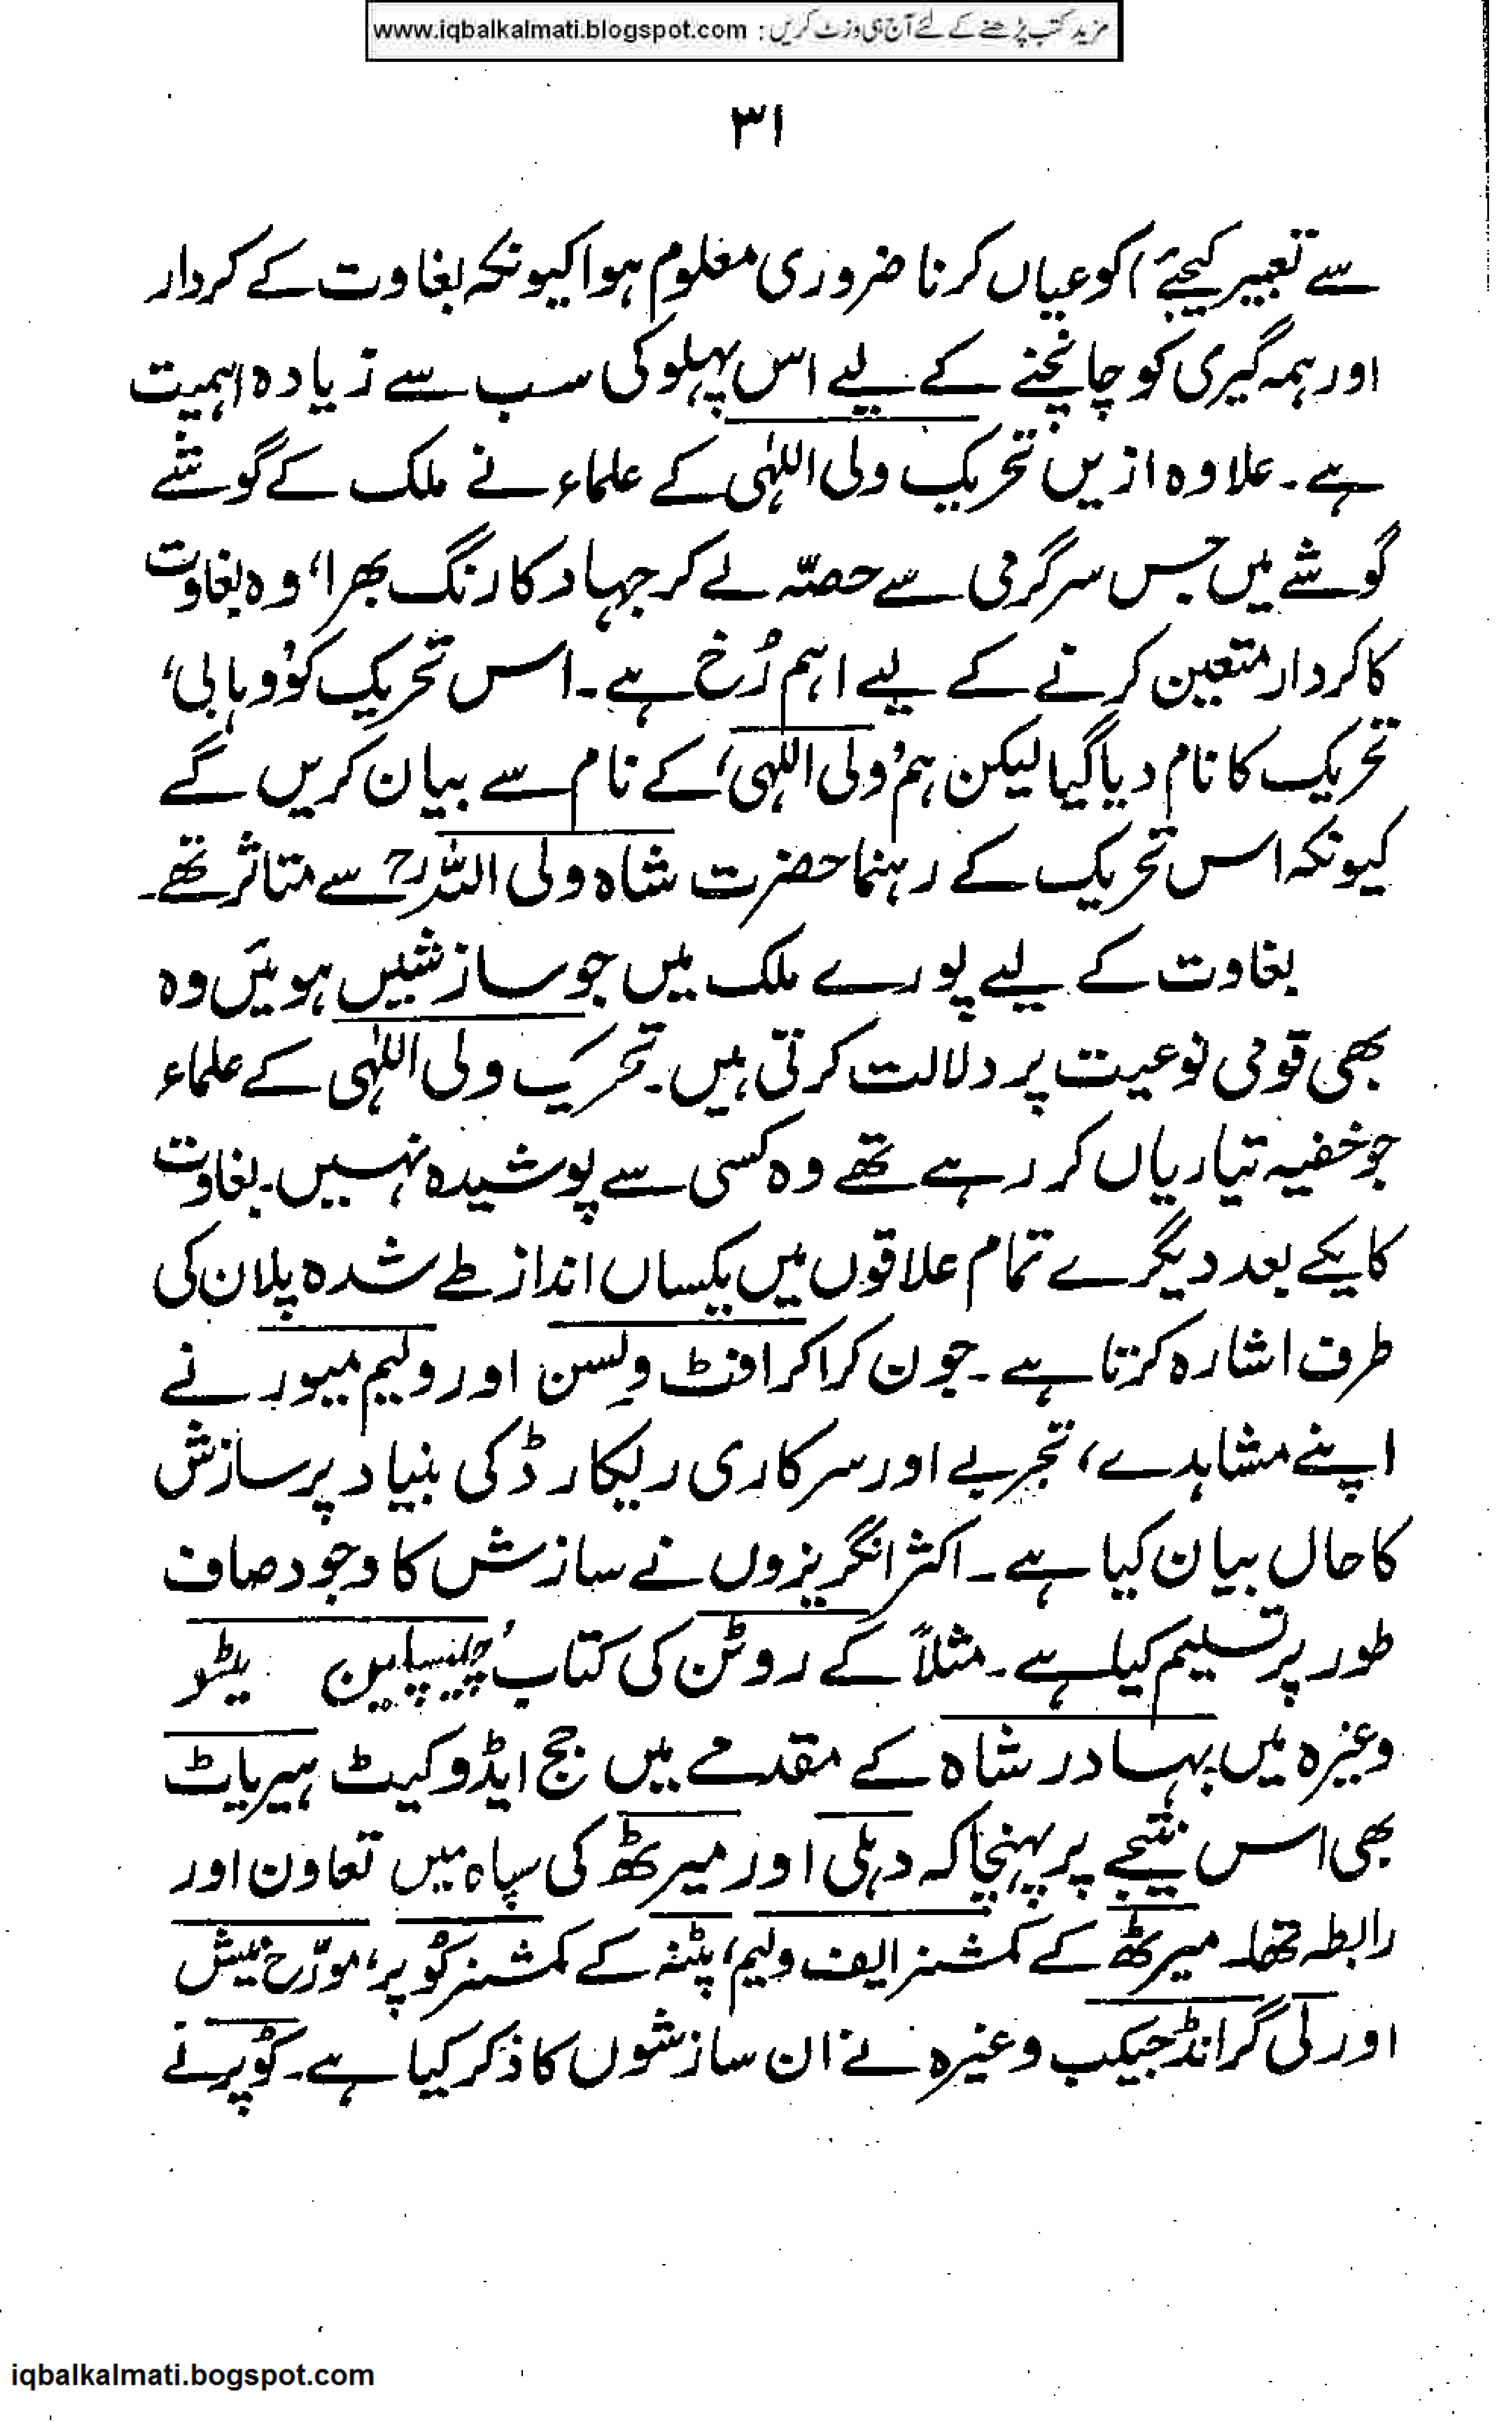 مزید کتب پڑھنے کے لئے آج ہی وزٹ کریں : www.iqbalkalmati.blogspot.com
۳۱
سے تعبیر کیجئے) کو عیاں کرنا ضروری معلوم ہوا کیونکہ بغاوت کے کردار
اور ہمہ گیری کو جانچنے کے لیے اس پہلو کی سب سے زیادہ اہمیت
ہے۔ علاوہ ازیں تحریک ولی اللہی کے علماء نے ملک کے گوشے
گوشے میں جس سرگرمی سے حصّہ لے کر جہاد کا رنگ بھرا، وہ بغاوت
کا کردار متعین کرنے کے لیے اہم رُخ ہے۔ اس تحریک کو 'وہابی'
تحریک کا نام دیا گیا لیکن ہم 'ولی اللہی' کے نام سے بیان کریں گے
کیونکہ اس تحریک کے رہنما حضرت شاہ ولی اللہؒ سے متاثر تھے۔
بغاوت کے لیے پورے ملک میں جو سازشیں ہوئیں وہ
بھی قومی نوعیت پر دلالت کرتی ہیں۔ تحریک ولی اللہی کے علماء
جو خفیہ تیاریاں کر رہے تھے وہ کسی سے پوشیدہ نہیں۔ بغاوت
کا یکے بعد دیگرے تمام علاقوں میں یکساں انداز طے شدہ پلان کی
طرف اشارہ کرتا ہے۔ جون کراکرافٹ ولسن اور ولیم میور نے
اپنے مشاہدے، تجربے اور سرکاری ریکارڈ کی بنیاد پر سازش
کا حال بیان کیا ہے۔ اکثر انگریزوں نے سازش کا وجود صاف
طور پر تسلیم کیا ہے۔ مثلاً کے روٹن کی کتاب 'چیپلین
وغیرہ میں بہادر شاہ کے مقدمے میں جج ایڈوکیٹ ہیریاٹ
بھی اس نتیجے پر پہنچا کہ دہلی اور میرٹھ کی سپاہ میں تعاون اور
رابطہ تھا۔ میرٹھ کے کمشنر ایف ولیم، پٹنہ کے کمشنر کُوپر، مورّخ میش
اور لی گرانڈ جیکب وغیرہ نے ان سازشوں کا ذکر کیا ہے۔ کُوپر نے
iqbalkalmati.bogspot.com